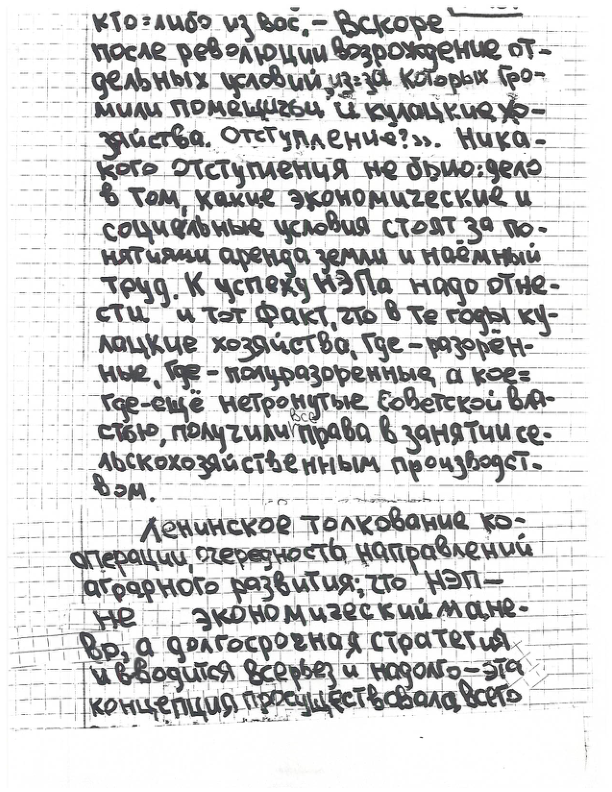 кто=либо из вас, – Вскоре
после революции возрождение от-
дельных условий, из=за которых гро-
мили помещичьи и кулацкие хо-
зяйства. Отступление?». Ника-
кого отступления не было: дело
в том, какие экономические и
социальные условия стоят за по-
нятиями аренда земли и наёмный
труд. К успеху НЭПа надо отне-
сти и тот факт, что в те годы ку-
лацкие хозяйства, где – разорён-
ные, где – полуразоренные, а кое=
где – ещё нетронутые Советской вла-
стью, получили все права в занятии се-
льскохозяйственным производст-
вом.
Ленинское толкование ко-
операции, очередность направлений
аграрного развития; что НЭП –
не экономический мане-
вр, а долгосрочная стратегия
и вводится всерьез и надолго – эта
концепция просуществовала всего